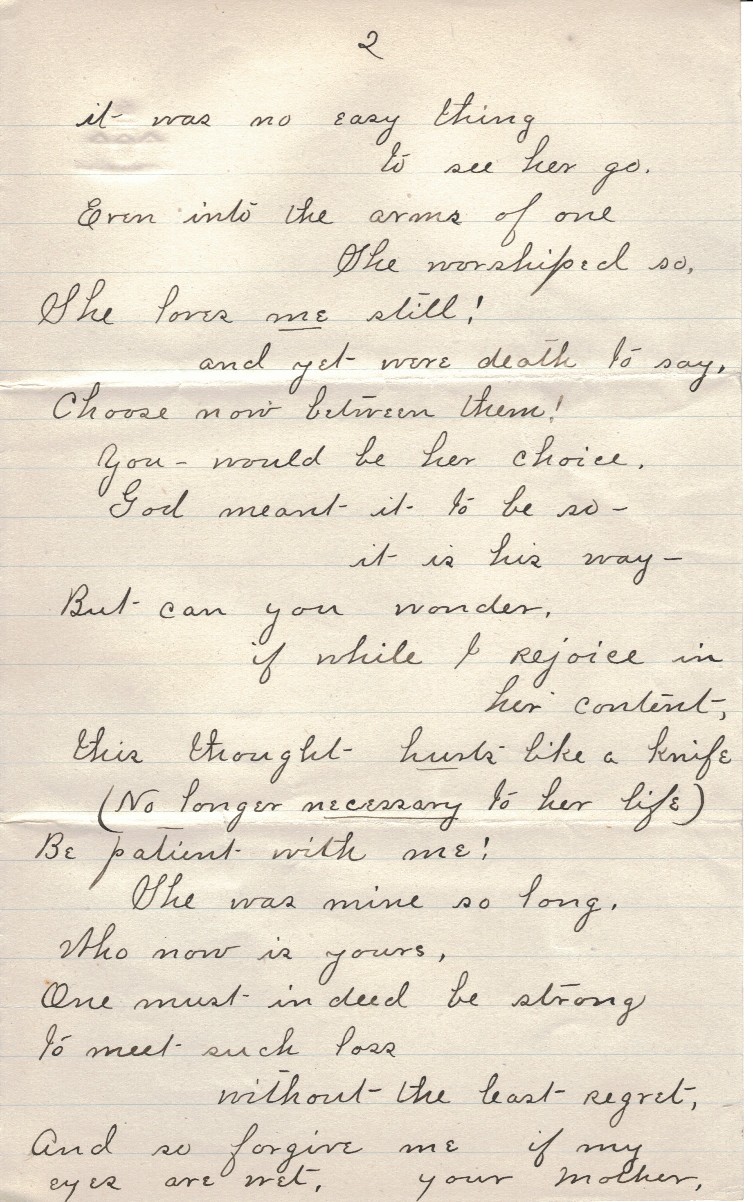 2
it was no easy thing
to see her go.
Even into the arms of one
She worshiped so,
She loves me still!
and yet were death to say,
Choose now between them!
You - would be her choice.
God meant it to be so -
it is his way -
But can you wonder,
if while I rejoice in
her content,
this thought hurts like a knife
(No longer necessary to her life)
Be patient with me!
She was mine so long,
Who now is yours,
One must indeed be strong
to meet such loss
without the least regret,
And so forgive me if my
eyes are wet, your Mother,